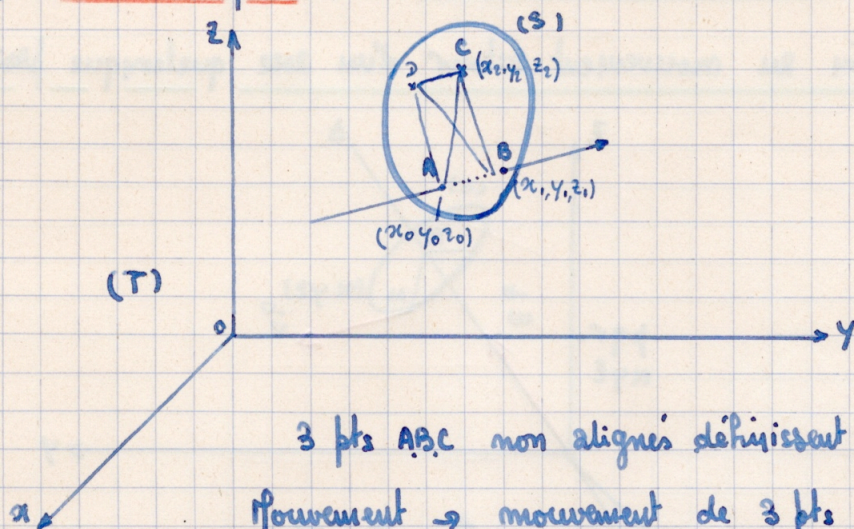 z
(S)
C
D
(x2, y2 z2)
A
B
(x1, y1, z1)
(x0 y0 z0)
(T)
0
y
3 pts A.B.C non alignés définissent
x
Mouvement → mouvement de 3 pts